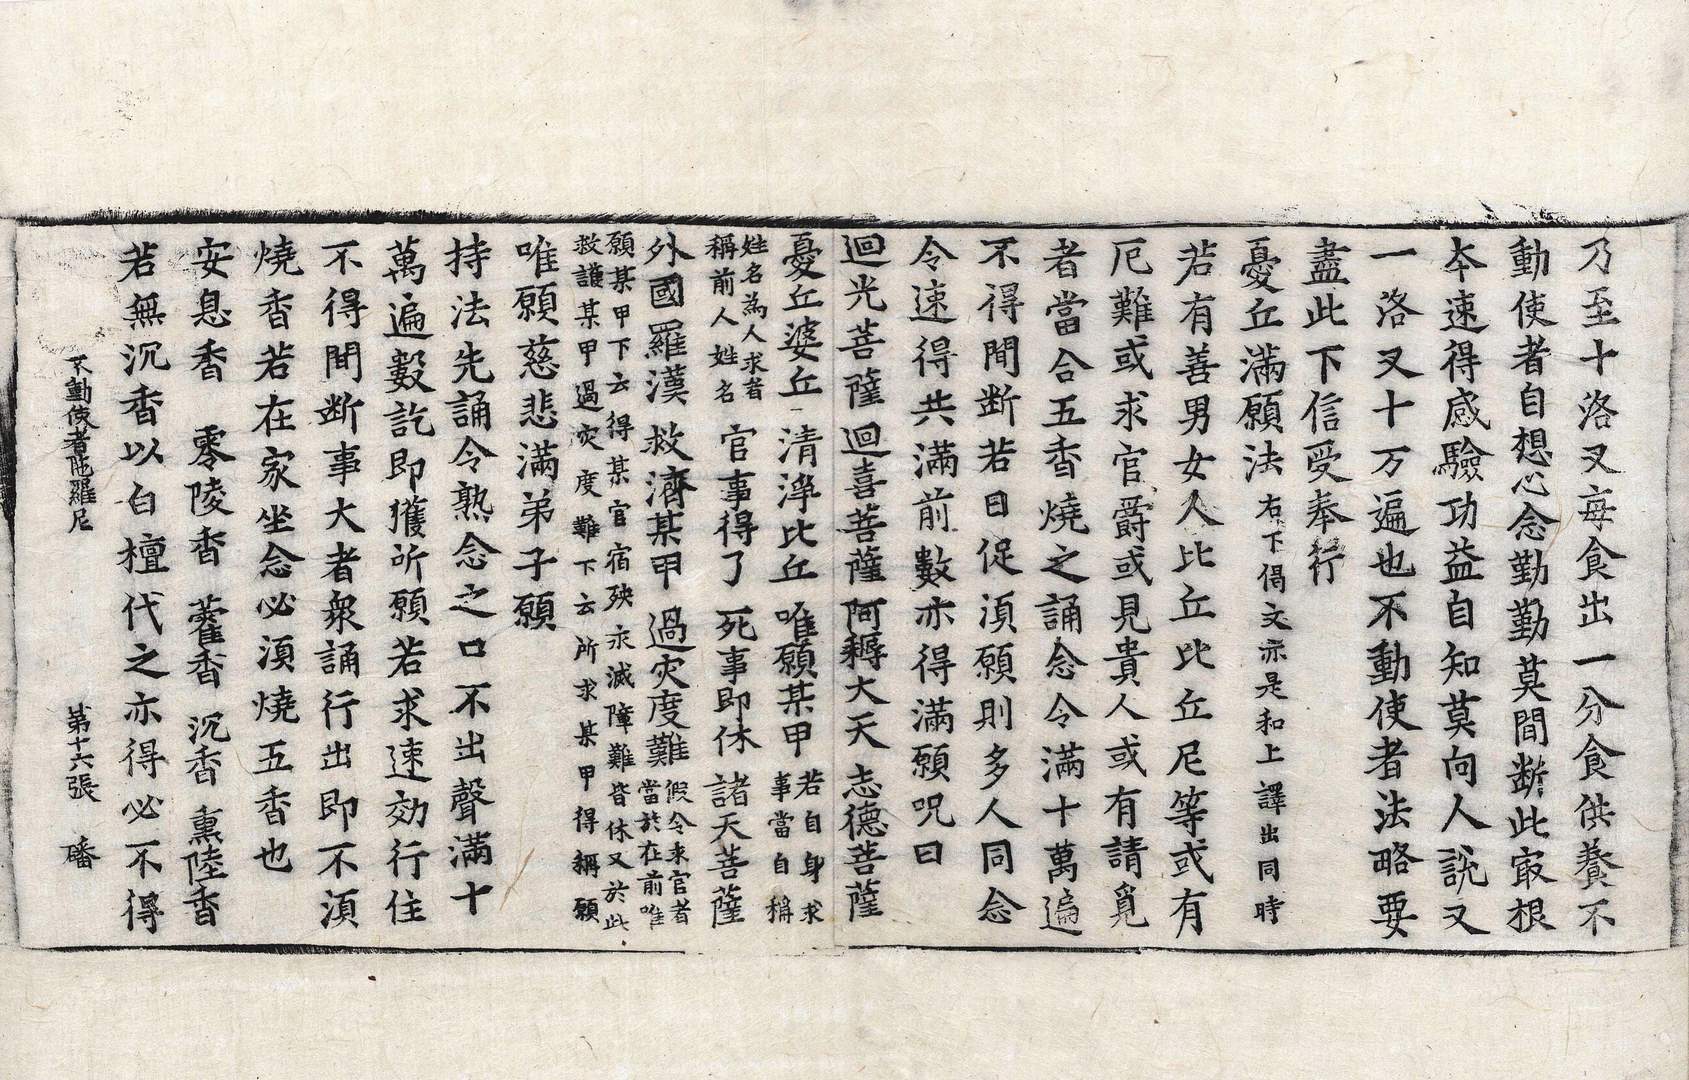 乃至十洛叉每食出一分食供養不
動使者自想心念勤勤莫間断此㝡根
夲速得感驗功益自知莫向人說又
一洛叉十万遍也不動使者法略要
盡此下信受奉行
憂丘滿願法 右下偈文亦是和上譯出同時
若有善男女人比丘比丘尼等或有
厄難或求官爵或見貴人或有請覓
者當合五香燒之誦念令滿十萬遍
不得間断若日促湏願則多人同念
令速得共滿前數亦得滿願呪曰
迴光菩薩迴喜菩薩阿耨大天志德菩薩
憂丘婆丘 清淨比丘 唯願某甲 若自身求
事當自稱
姓名為人求者
稱前人姓名 官事得了 死事即休 諸天菩薩
外國羅漢 救濟某甲 過灾度難 假令求官者
當於在前唯
願某甲下云得某官宿殃永滅障難皆休又於此
救護某甲過灾度難下云所求某甲得稱願
唯願慈悲滿弟子願
持法先誦令熟念之口不出聲滿十
萬遍數訖即獲所願若求速効行住
不得間断事大者衆誦行出即不湏
燒香若在家坐念必湏燒五香也
安息香 零陵香 藿香 沉香 熏陸香
若無沉香以白檀代之亦得必不得
不動使者陁羅尼 第十六張 磻